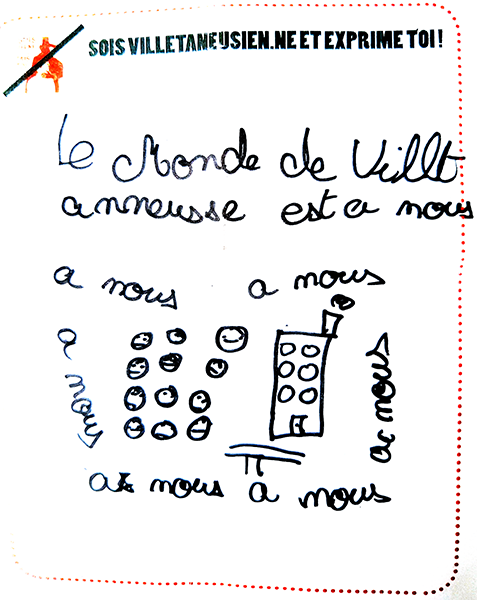 SOIS VILLETANEUSIEN.NE ET EXPRIME TOI!
Le Monde de Villt
anneusse est a nous
a nous
a nous
a nous
a nous
a nous
a nous